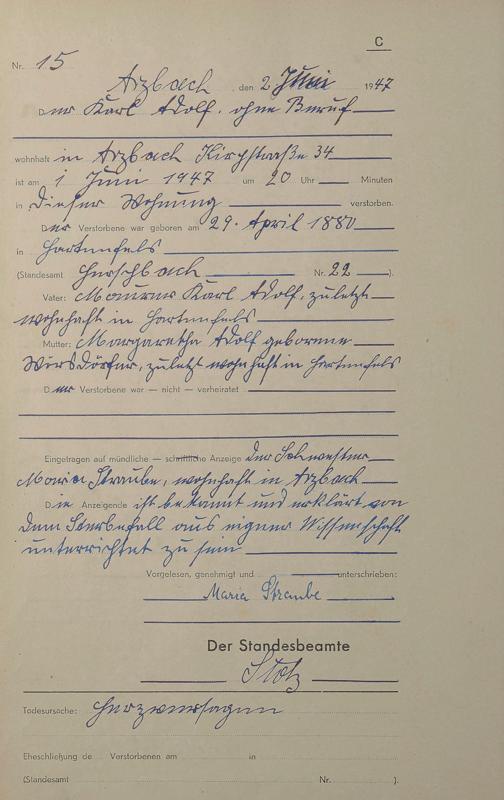 C
Nr. 15
Arzbach, den 2 Juni 1947
Der Karl Adolf. ohne Beruf
wohnhaft in Arzbach Kirchstraße 34
ist am 1 Juni 1947 um 20 Uhr Minuten
in dieser Wohnung verstorben.
Der Verstorbene war geboren am 29. April 1880
in Hartenfels
(Standesamt Herschbach Nr. 22).
Vater: Maurer Karl Adolf, zuletzt
wohnhaft in Hartenfels
Mutter: Margaretha Adolf geborene
Wirsdörfer, zuletzt wohnhaft in Hartenfels
Der Verstorbene war — nicht — verheiratet
Eingetragen auf mündliche — schriftliche Anzeige der Schwester
Maria Straube, wohnhaft in Arzbach
Die Anzeigende ist bekannt und erklärt von
dem Sterbefall aus eigner Wissenschaft
unterrichtet zu sein
Vorgelesen, genehmigt und unterschrieben:
Maria Straube
Der Standesbeamte
Stotz
Todesursache: Herzversagen
Eheschließung de Verstorbenen am in
(Standesamt Nr. ).